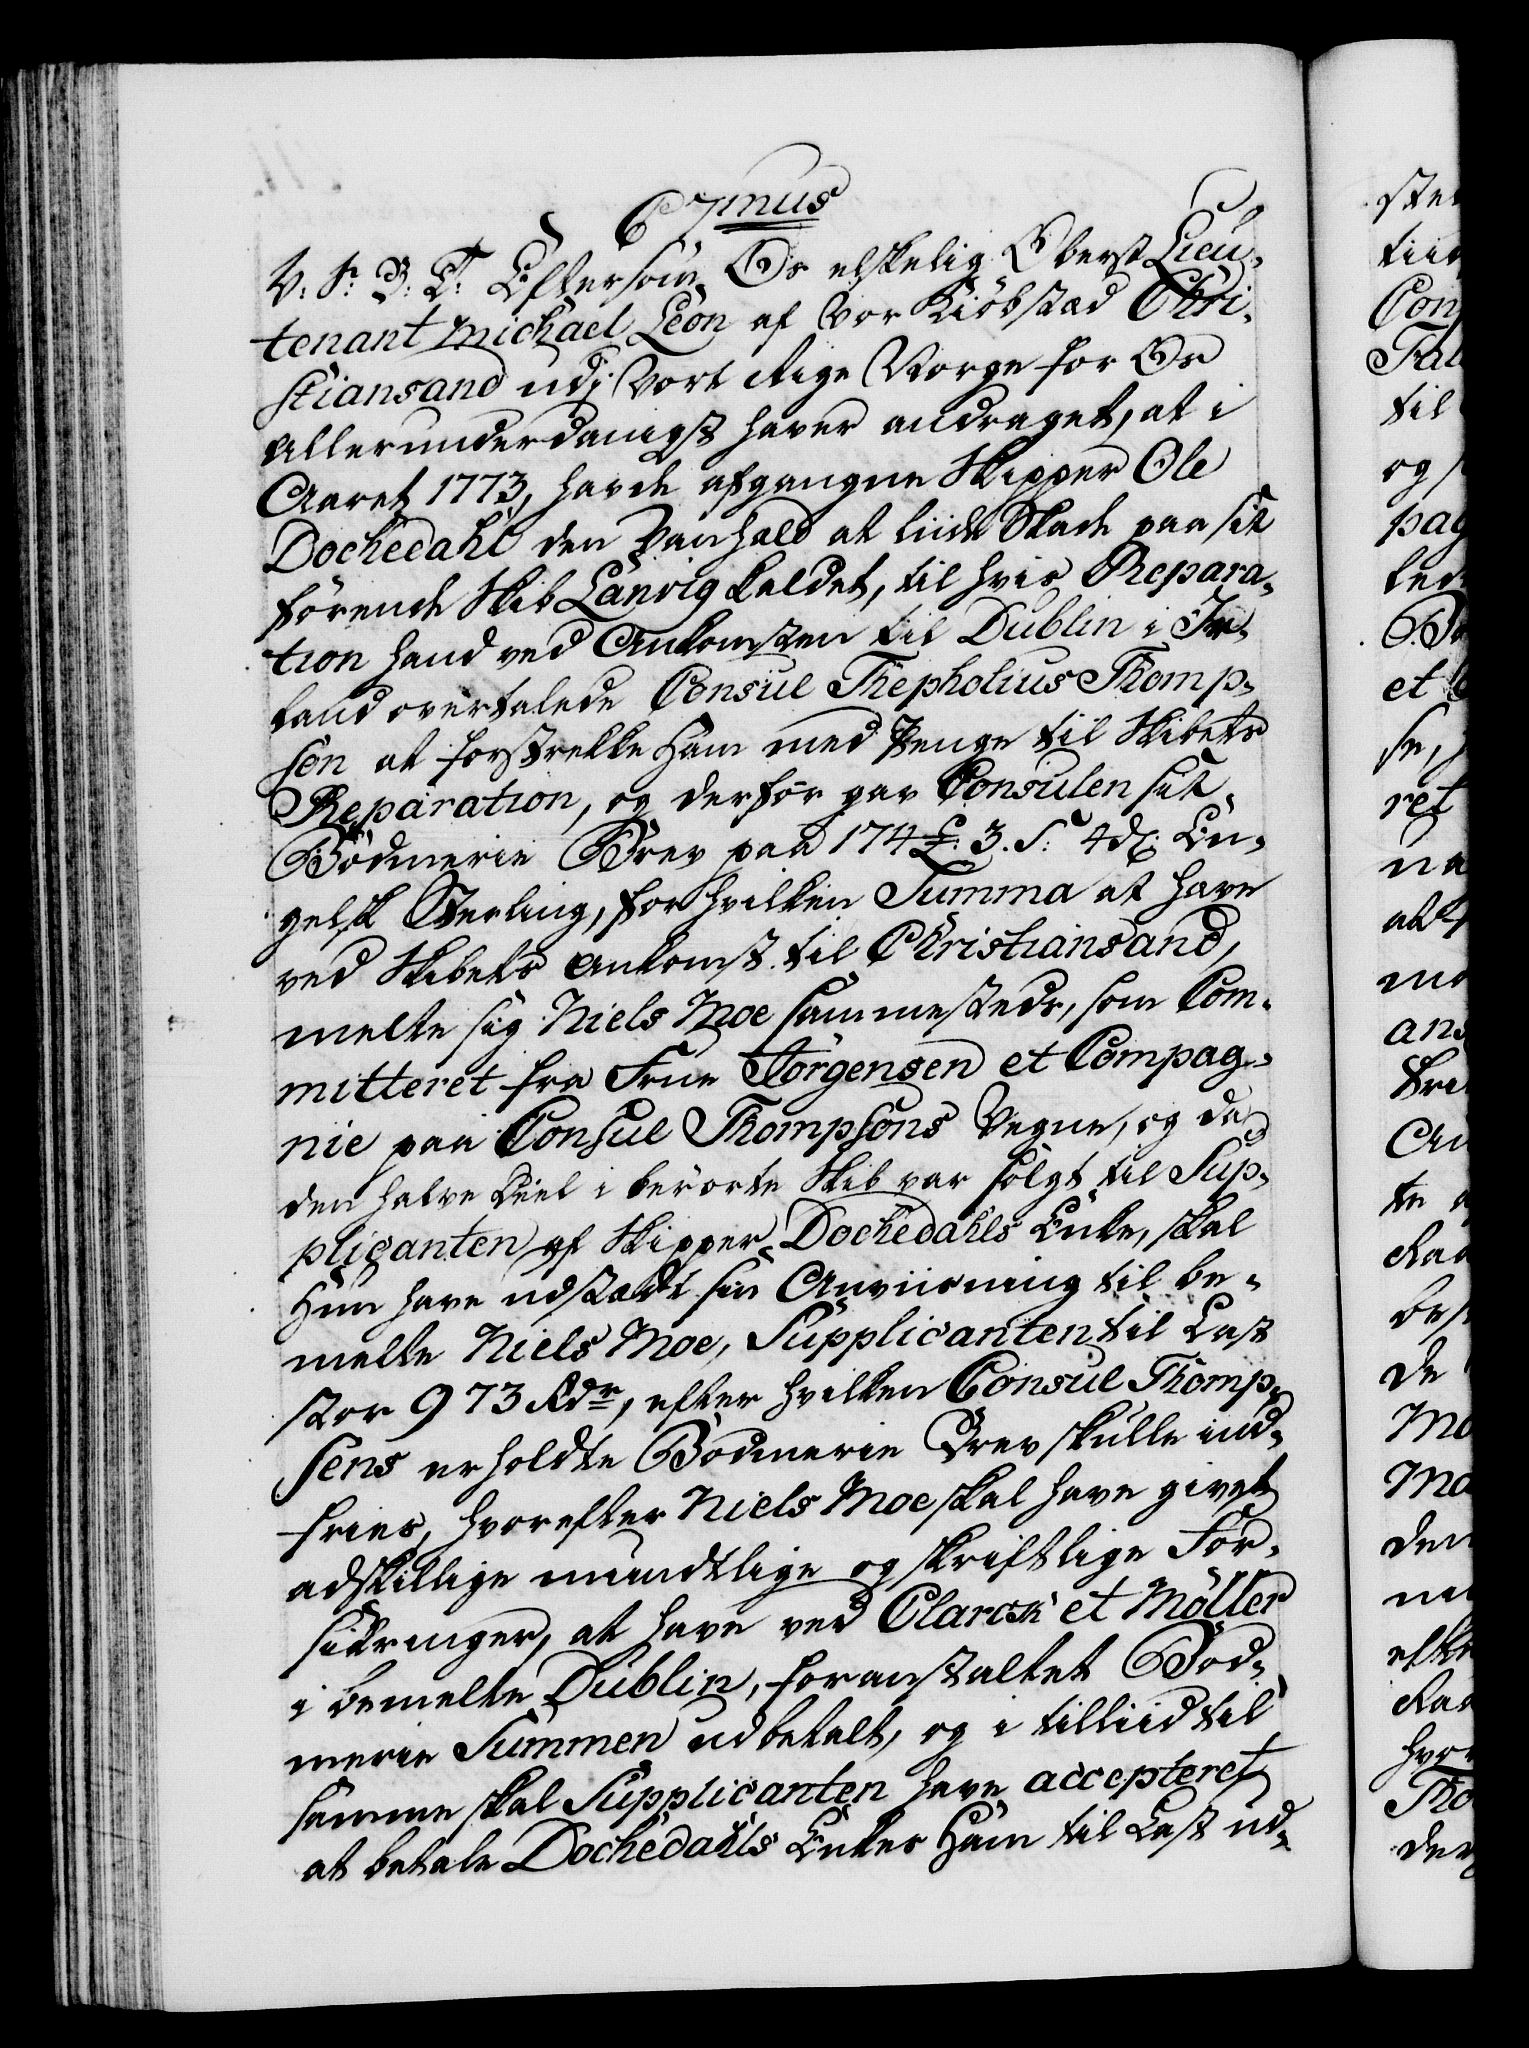 C7mus
V: S: B: T: Eftersom Os elskelig Oberst Lieu-
tenant Michael Leon af Vor Kiöbstæd Chri-
stiansand udj Vort Rige Norge for Os
allerunderdanigst haver andraget, at i
Aaret 1773, havde afgangne Skipper Ole
Dochedahl den Vanheld at liide Skade paa sit
förende Skib Lanvig kaldet, til hvis Repara-
tion hand ved Ankomsten til Dublin i Ir-
land overtalede Consul Thepholius Thomp-
son at forstrekke ham med Penge til Skibets
Reparation, og derfor gav Consulen sit
Bödmerie Brev paa 174 £. 3. S: 4 d: En-
gelsk Sterling, for hvilken Summa at have
ved Skibets Ankomst til Christiansand,
melte sig Niels Moe sammesteds, som Com-
mitteret fra Frue Jörgensen et Compag-
nie paa Consul Thompsons Vegne, og da
den halve Deel i berörte Skib var solgt til Sup-
plicanten af Skipper Dochedahls Enke, skal
Hun have udstædt sin Anviisning til be-
melte Niels Moe, Supplicanten til Last
stor 973 Rdr, efter hvilken Consul Thomp-
sens erholdte Bödmerie Brev skulle ind-
fries, hvorefter Niels Moe skal have givet
adskillige mundtlige og skriftlige For-
sikringer, at have ved Clarck et Möller
i bemelte Dublin, foranstaltet Böd-
merie Summen udbetalt, og i tilliid til
samme skal Supplicanten have accepteret
at betale Dochedahls Enkes Ham til Last ud-